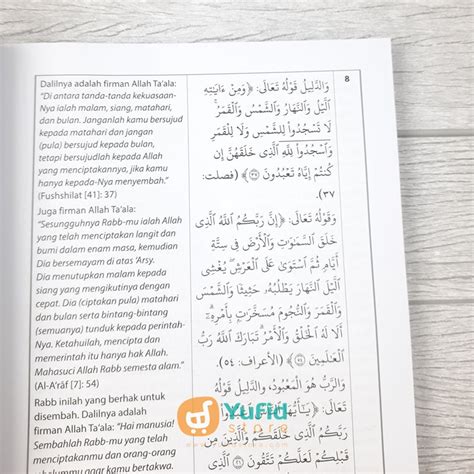 Dalilnya adalah firman Allah Ta'ala:
"Di antara tanda-tanda kekuasaan-
Nya ialah malam, siang, matahari,
dan bulan. Janganlah kamu bersujud
kepada matahari dan jangan
(pula) bersujud kepada bulan,
tetapi bersujudlah kepada Allah
yang menciptakannya, jika kamu
hanya kepada-Nya menyembah."
(Fushshilat [41]: 37)
Juga firman Allah Ta'ala:
"Sesungguhnya Rabb-mu ialah Allah
yang telah menciptakan langit dan
bumi dalam enam masa, kemudian
Dia bersemayam di atas 'Arsy.
Dia menutupkan malam kepada
siang yang mengikutinya dengan
cepat. Dia (ciptakan pula) matahari
dan bulan serta bintang-bintang
(semuanya) tunduk kepada perintah-
Nya. Ketahuilah, mencipta dan
memerintah itu hanya hak Allah.
Mahasuci Allah Rabb semesta alam."
(Al-A'rāf [7]: 54)
Rabb inilah yang berhak untuk
disembah. Dalilnya adalah
firman Allah Ta'ala: "Hai manusia!
Sembahlah Rabb-mu yang telah
menciptakanmu dan orang-orang
sebelummu agar kamu bertakwa.
8
وَالدَّلِيلُ قَوْلُهُ تَعَالَى: ﴿وَمِنْ ءَايَٰتِهِ
ٱلَّيْلُ وَٱلنَّهَارُ وَٱلشَّمْسُ وَٱلْقَمَرُۚ
لَا تَسْجُدُوا۟ لِلشَّمْسِ وَلَا لِلْقَمَرِ
وَٱسْجُدُوا۟ لِلَّهِ ٱلَّذِى خَلَقَهُنَّ إِن
كُنتُمْ إِيَّاهُ تَعْبُدُونَ ٣٧﴾ (فصلت:
٣٧).
وَقَوْلُهُ تَعَالَى: ﴿إِنَّ رَبَّكُمُ ٱللَّهُ ٱلَّذِى
خَلَقَ ٱلسَّمَٰوَٰتِ وَٱلْأَرْضَ فِى سِتَّةِ
أَيَّامٍ ثُمَّ ٱسْتَوَىٰ عَلَى ٱلْعَرْشِ يُغْشِى
ٱلَّيْلَ ٱلنَّهَارَ يَطْلُبُهُۥ حَثِيثًا وَٱلشَّمْسَ
وَٱلْقَمَرَ وَٱلنُّجُومَ مُسَخَّرَٰتٍۭ بِأَمْرِهِۦٓۗ
أَلَا لَهُ ٱلْخَلْقُ وَٱلْأَمْرُۗ تَبَارَكَ ٱللَّهُ رَبُّ
ٱلْعَٰلَمِينَ ٥٤﴾ (الأعراف: ٥٤).
وَالرَّبُّ هُوَ الْمَعْبُودُ، وَالدَّلِيلُ قَوْلُهُ
تَعَالَى: ﴿يَٰٓأَيُّهَا
رَبَّكُمُ ٱلَّذِى خَلَقَكُمْ وَٱلَّذِينَ مِن
قَبْلِكُمْ لَعَلَّكُمْ تَتَّقُونَ ٢١
Yufid
store